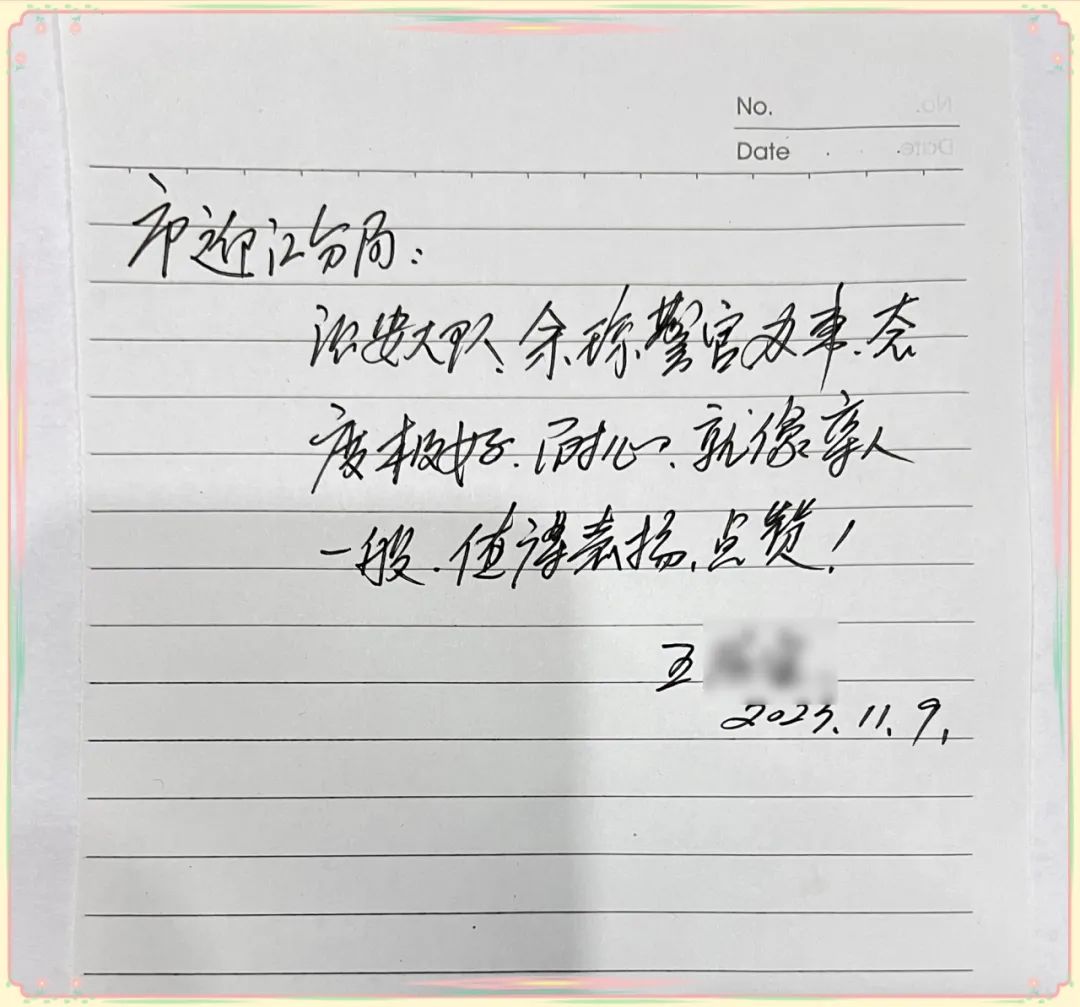 No.
Date
市迎江分局：
治安大队、余琼警官办事、态
度极好、耐心、就像亲人
一般、值得表扬、点赞！
王
2023.11.9.